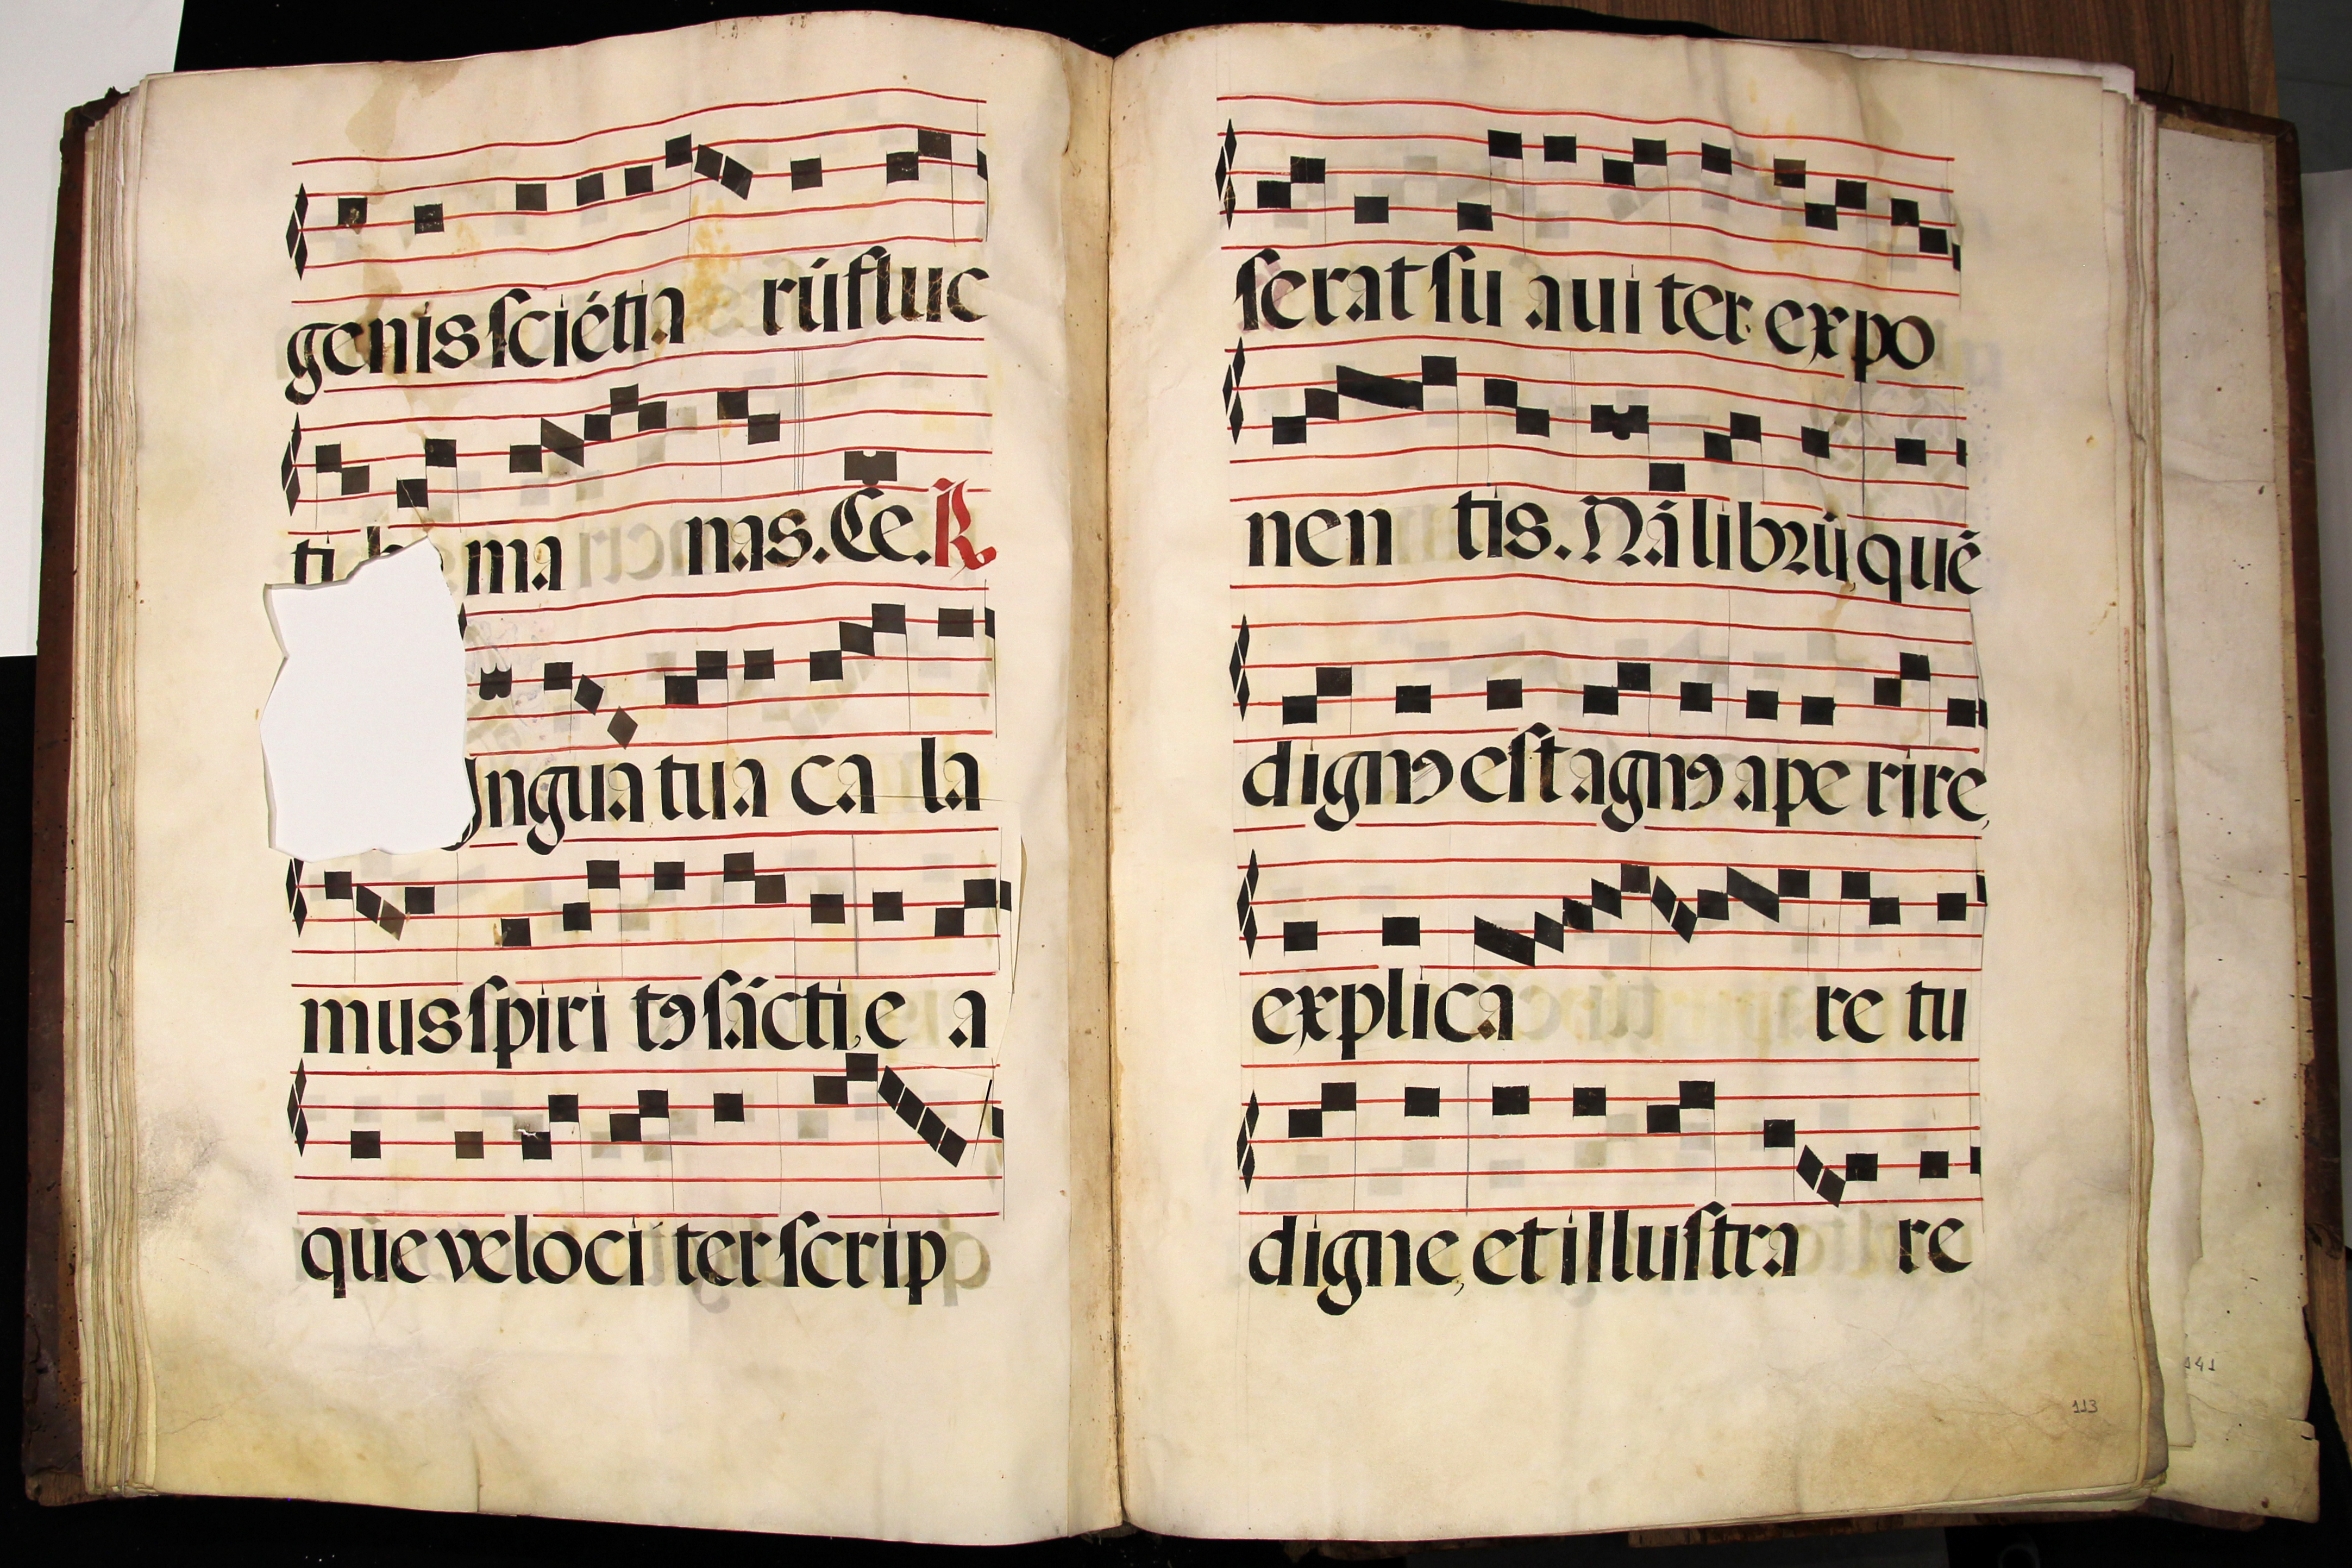 genis sciētia rū fluc
ti b ma nas. Ce. R.
ingua tua ca la
mus spiri tꝰ sācti, e a
que veloci ter scrip
serat su aui ter expo
nen tis. Nā librū quē
dignꝰ est agnꝰ ape rire,
explica re tu
digne, et illustra re
113
141